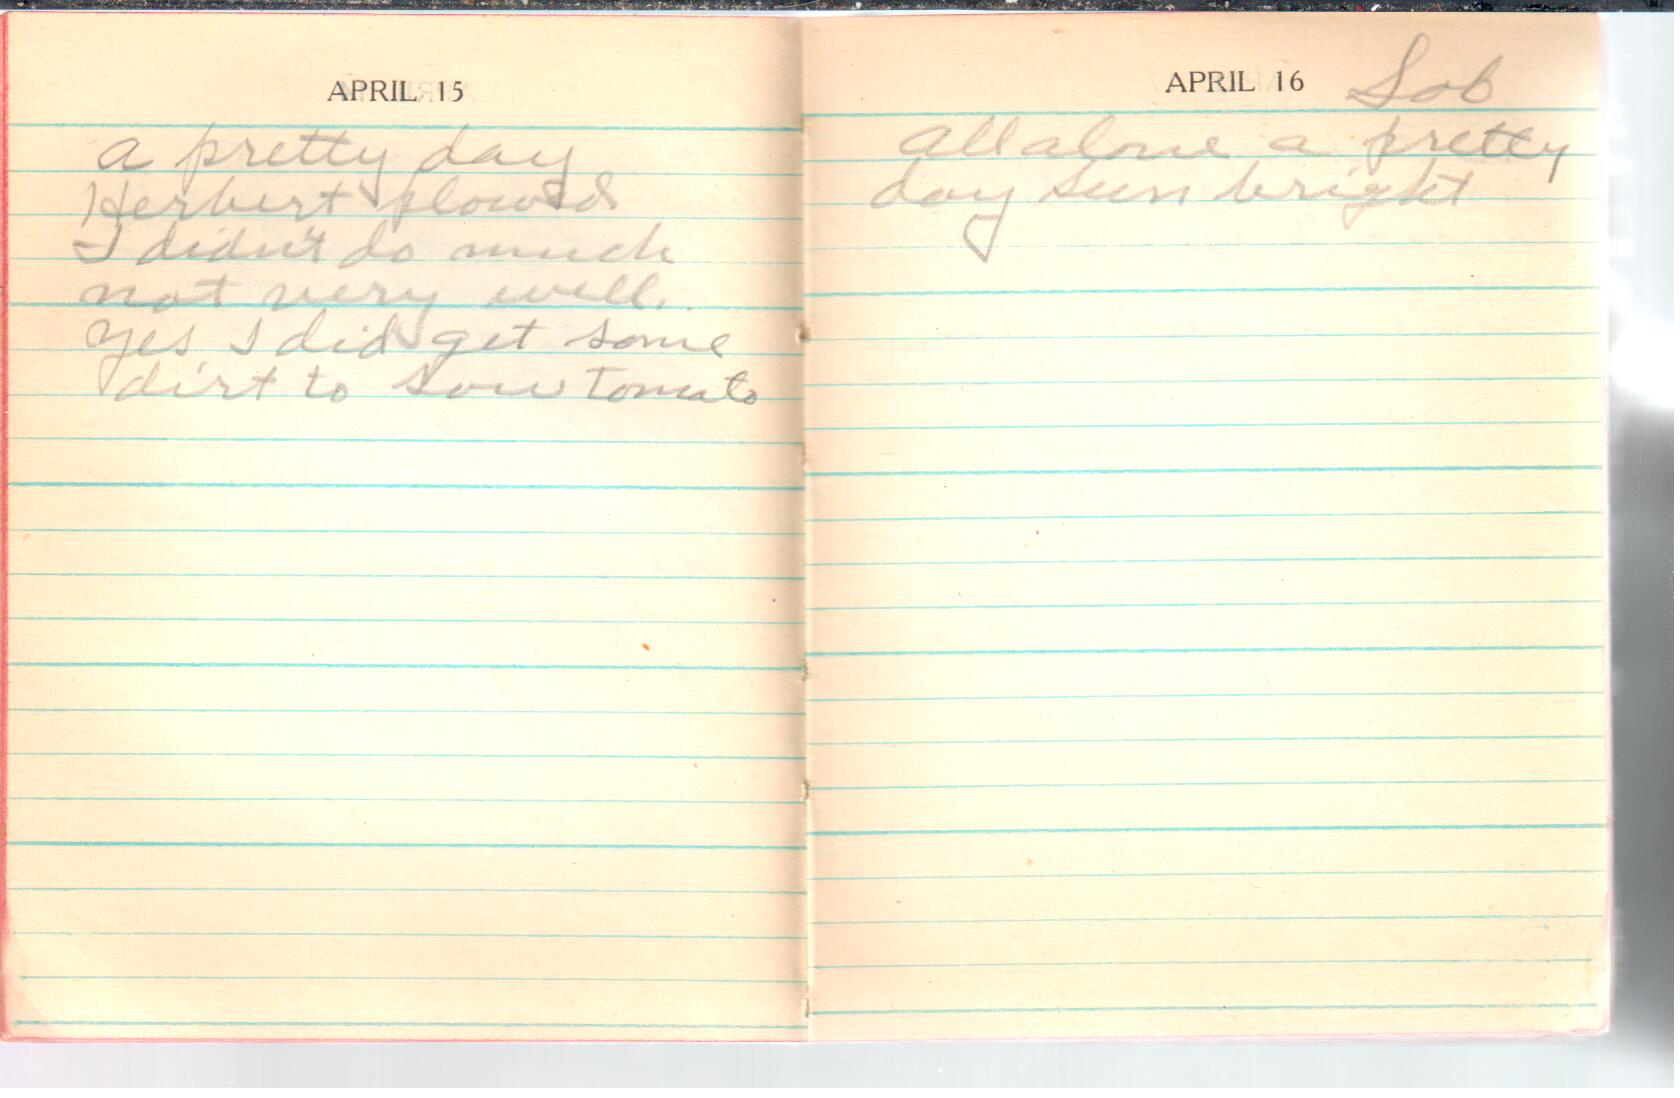 APRIL 15
a pretty day
Herbert plowed
I didn't do much
not very well.
yes I did get some
dirt to sow tomato
APRIL 16 Sab
all alone a pretty
day sun bright